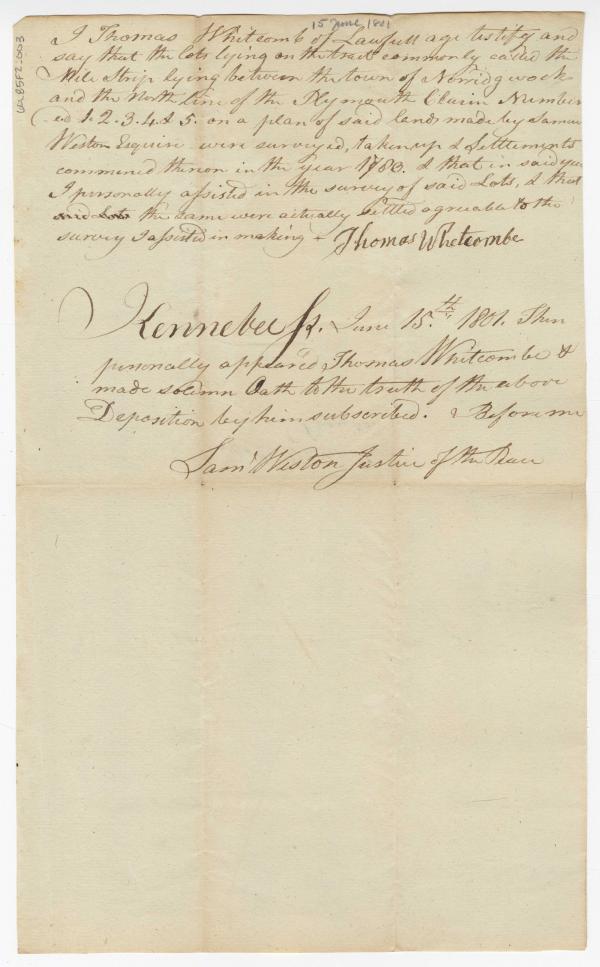 15 June, 1801
I Thomas Whitcomb of Lawfull age testify and
say that the lots lying on the tract commonly called the
Mile Strip lying between the town of Norridgwock
and the North line of the Plymouth Claim Number
ed 1. 2. 3. 4. & 5. on a plan of said land made by Samuel
Weston Esquire were surveyed, taken up & Settlements
commenced thereon in the year 1780. & that in said year
I personally assisted in the survey of said Lots, & that
said Lots the same were actually settled agreeable to the
survey I assisted in making
Thomas Whetcombe
Kennebec Ss. June 15.th 1801. Then
personally appeared Thomas Whitcombe &
made solemn Oath to the truth of the above
Deposition by him subscribed. Before me
Saml Weston Justice of the Peace